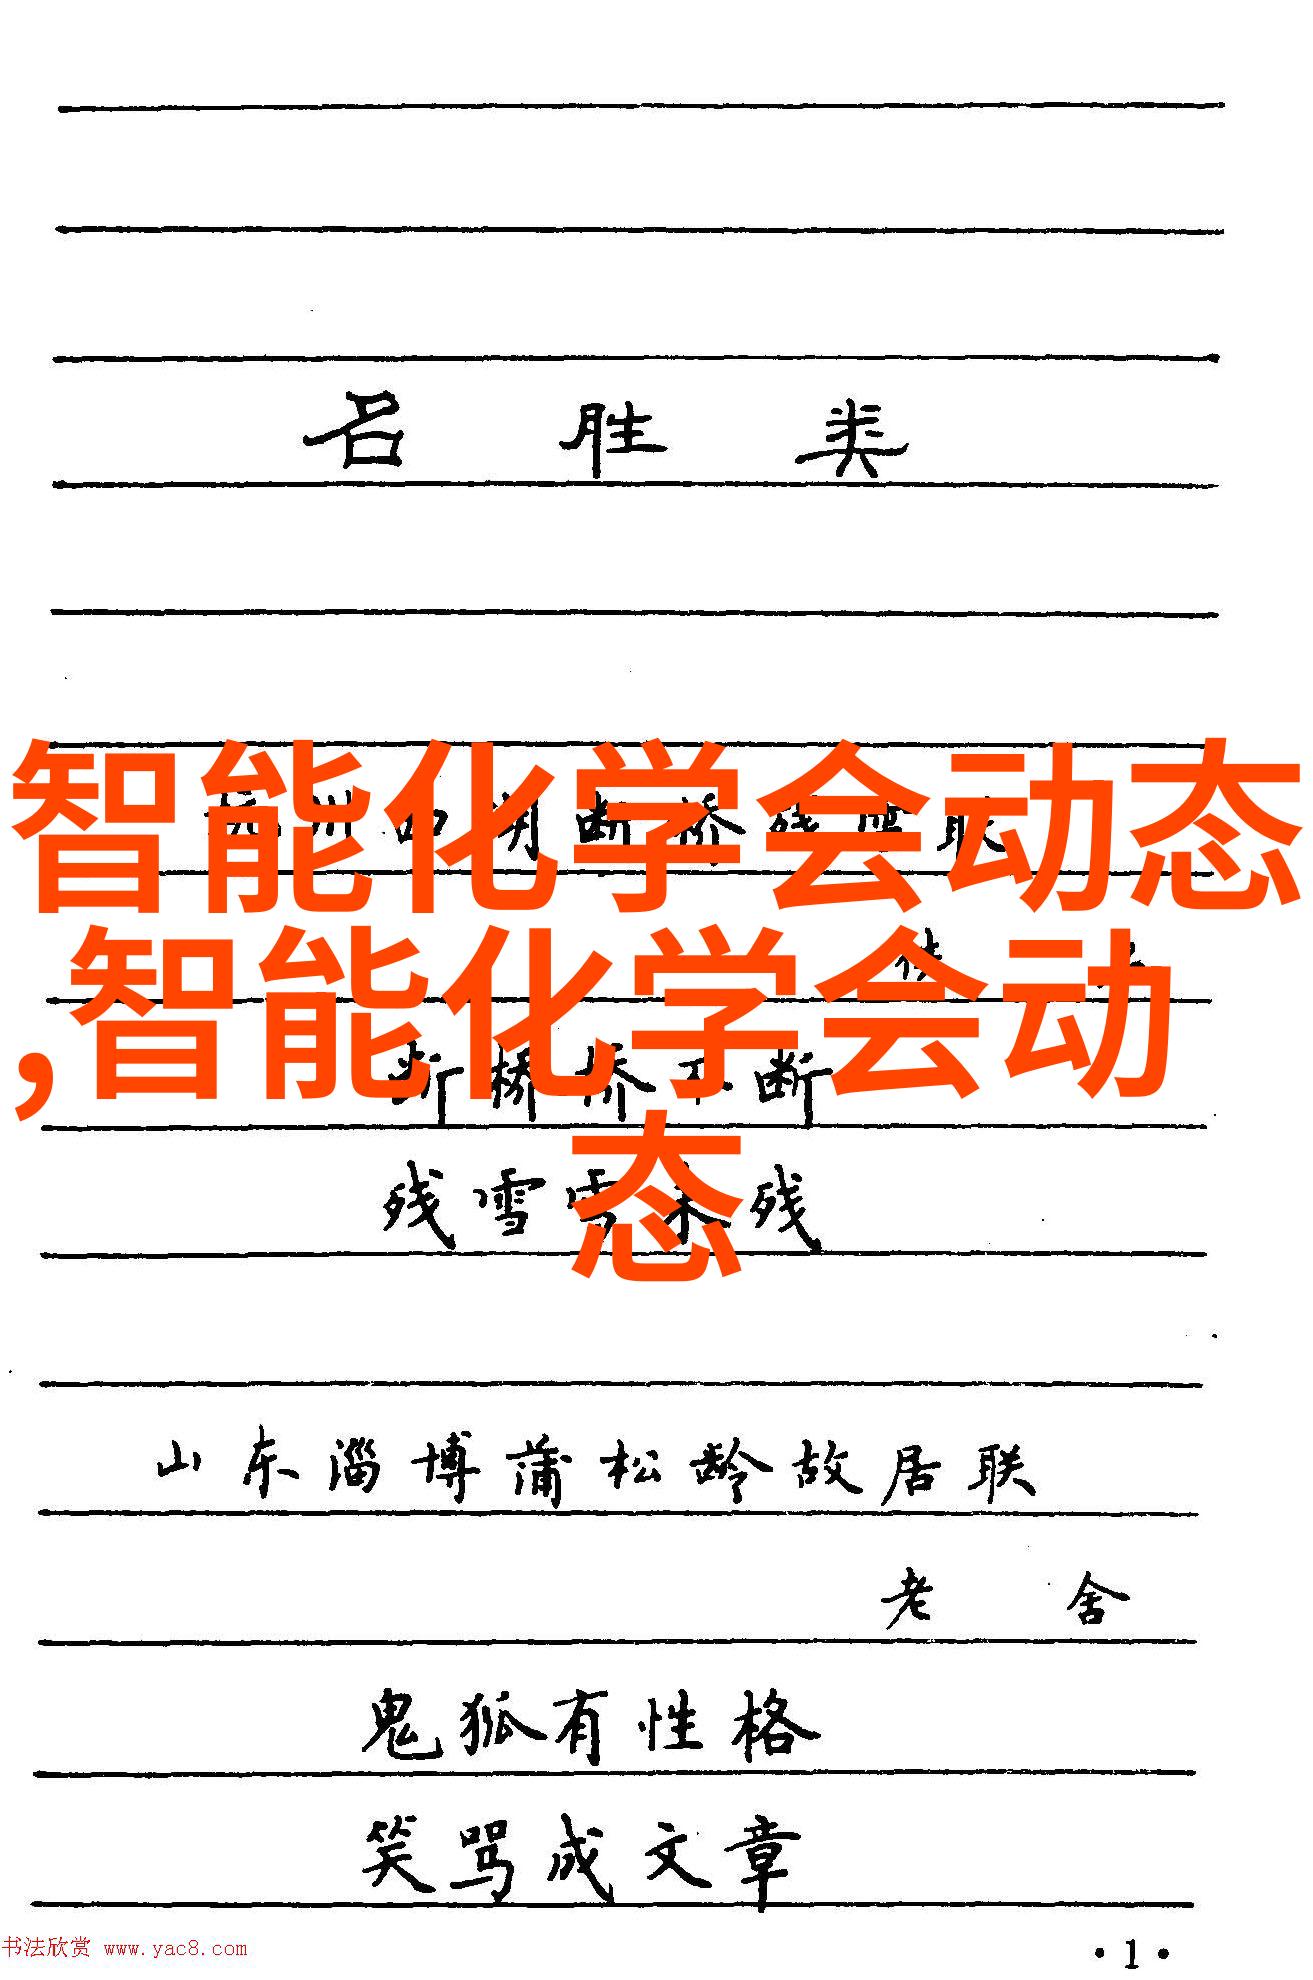 名胜类
智能化学会动态
,智能化学会动
态
断桥桥不断
残雪雪未残
山东淄博蒲松龄故居联
老舍
鬼狐有性格
笑骂成文章
书法欣赏 www.yac8.com
·1·